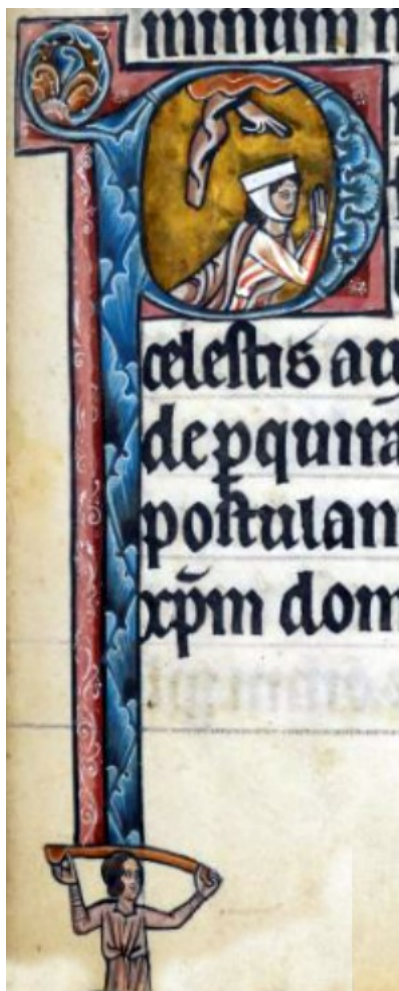 minum
P
celeſtis au
de ꝑquira
poſtulan
xp̄m dom